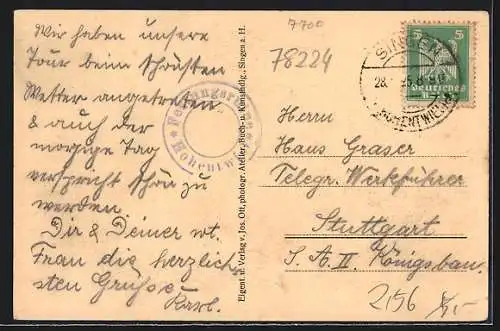 Wir haben unsere
Tour beim schönsten
Wetter angetreten
& auch der
morgige Tag
verspricht schön zu
werden
Dir & Deiner wt.
Frau die herzlich-
sten Grüße
Karl.
Hohentwiel
Eigent. u. Verlag v. Jos. Ott, photogr. Atelier, Buch- u. Kunsthdlg., Singen a. H.
7700
78224
SINGEN
28.
5
5
Deutsches Reich
Herrn
Haus Graser
Telegr. Werkführer
Stuttgart
S. A. II. Königsbau.
2156